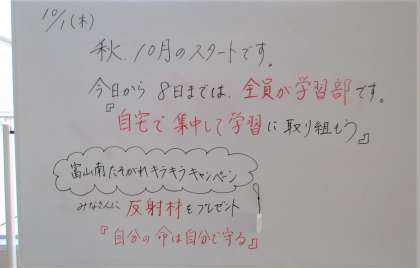 10/1(木)
秋、10月のスタートです。
今日から8日までは、全員が学習部です。
『自宅で集中して学習に取り組もう』
富山南たそがれキラキラキャンペーン
みなさんに反射材をプレゼント
『自分の命は自分で守る』